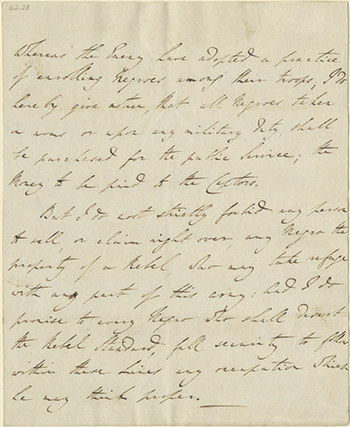 62.28
Whereas the Enemy have adopted a practice
of enrolling Negroes among their troops; I do
hereby give notice, that all Negroes taken
in arms or upon any military Duty, shall
be purchased for the public Service; the
Money to be paid to the Captors.
But I do most strictly forbid any person
to sell, or claim right over, any Negro the
property of a Rebel who may take refuge
with any part of this army: And I do
promise to every Negro who shall desert
the Rebel Standard, full security to follow
within these Lines any occupation which
he may think proper.